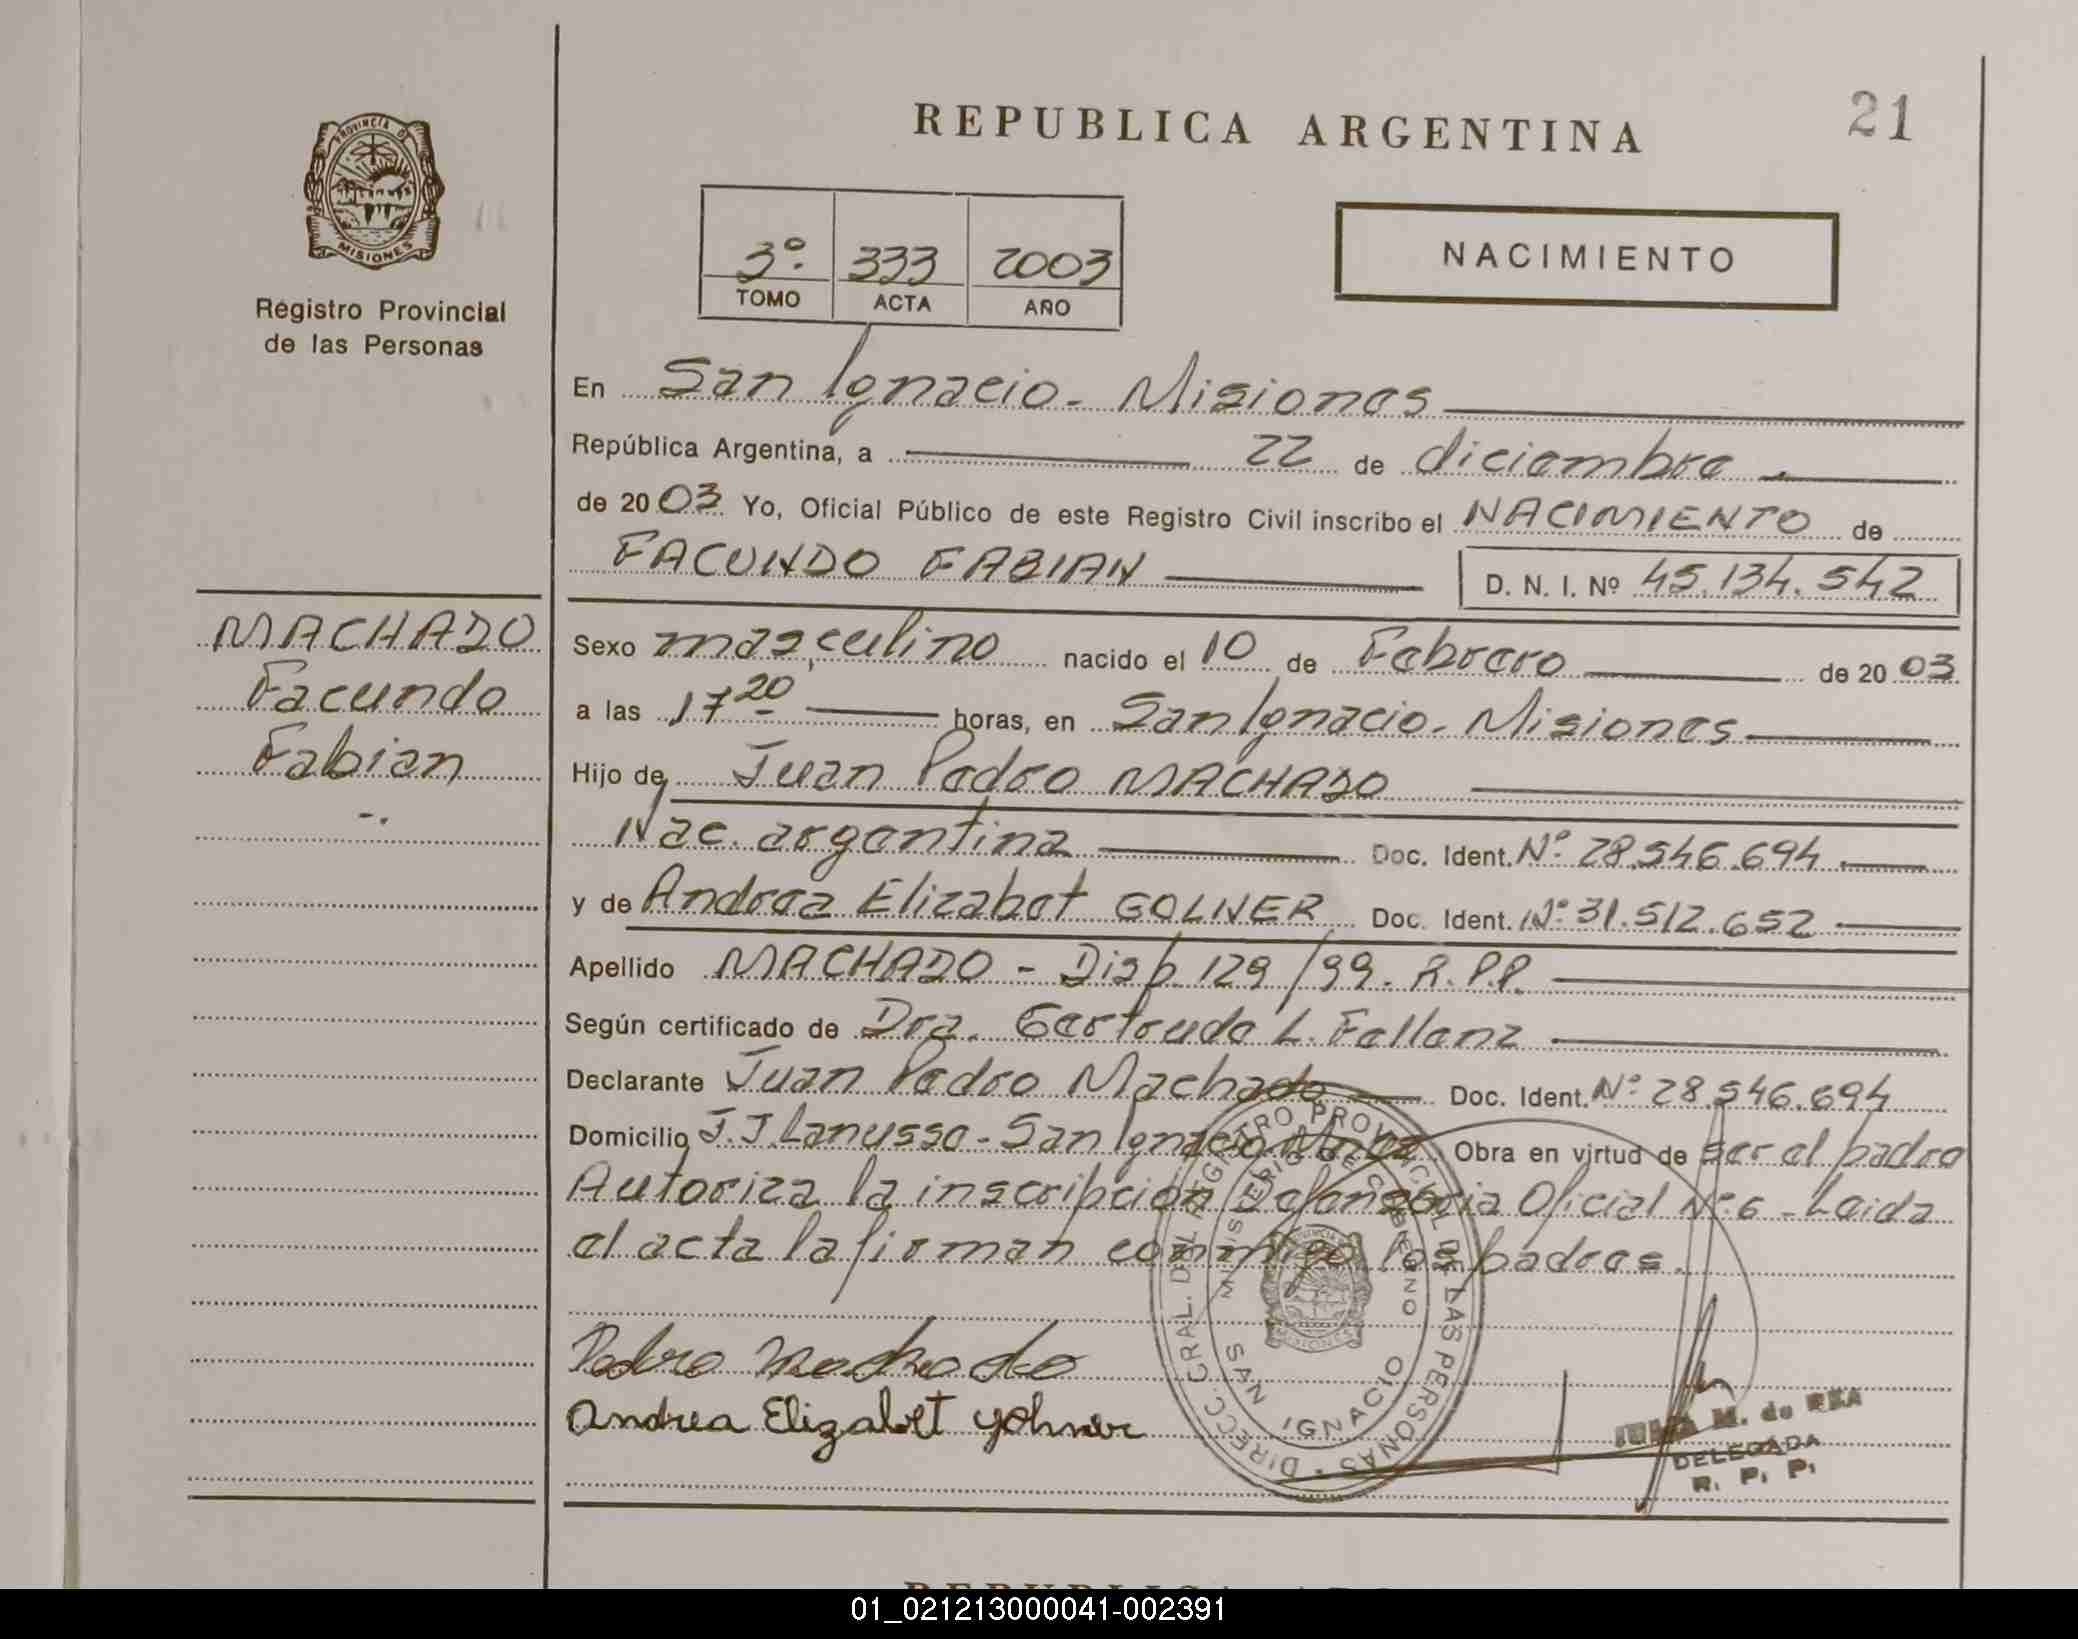 REPUBLICA ARGENTINA
21
PROVINCIA DE
MISIONES
Registro Provincial
de las Personas
3º. 333 2003
TOMO ACTA AÑO
NACIMIENTO
En San Ignacio - Misiones
República Argentina, a 22 de diciembre
de 2003 Yo, Oficial Público de este Registro Civil inscribo el NACIMIENTO de
FACUNDO FABIAN D. N. I. Nº 45.134.542
MACHADO
Facundo
Fabian
Sexo masculino nacido el 10 de Febrero de 2003
a las 17 20 horas, en San Ignacio - Misiones
Hijo de Juan Pedro MACHADO
Nac. argentina Doc. Ident. Nº 28.546.694
y de Andrea Elizabet GOLNER Doc. Ident. Nº 31.512.652
Apellido MACHADO - Disp. 129/99. R.P.P.
Según certificado de Dra. Gertrude L. Fallanz
Declarante Juan Pedro Machado Doc. Ident. Nº 28.546.694
Domicilio J.J Lanusse - San Ignacio Mnes Obra en virtud de ser el padre
Autoriza la inscripción Defensoria Oficial Nº 6 - Leida
el acta la firman conmigo los padres.
Pedro Machado
Andrea Elizabet Yohner
DIRECC. GRAL. DEL REGISTRO PROVINCIAL DE LAS PERSONAS
MINISTERIO DE GOBIERNO
SAN IGNACIO
MISIONES
M. de REA
DELEGADA
R. P. P.
01_021213000041-002391